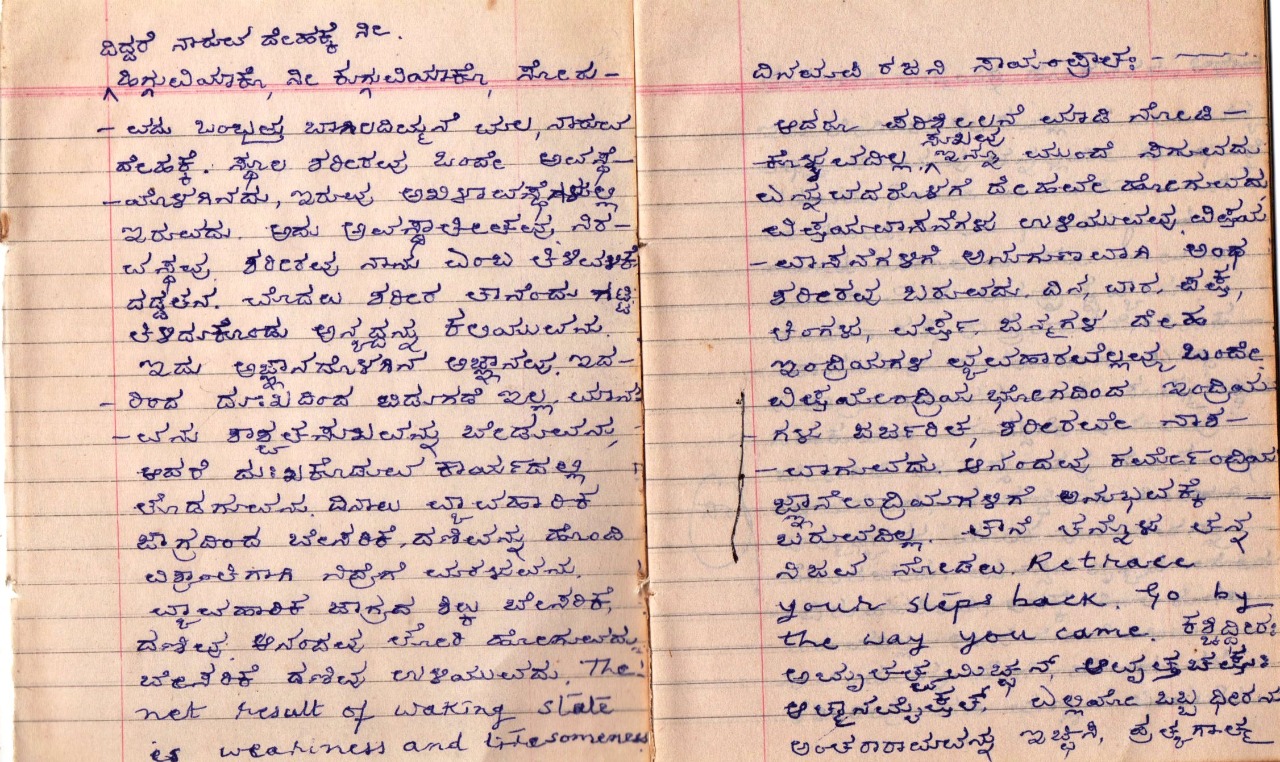 ದಿದ್ದರೆ ನಾರುವ ದೇಹಕ್ಕೆ ನೀ.
ಹಿಗ್ಗುವಿಯಾಕೊ, ನೀ ಕುಗ್ಗುವಿಯಾಕೊ, ಸೋರು-
-ವದು ಒಂಭತ್ತು ಬಾಗಿಲದಿಮ್ಮನೆ ಮಲ, ನಾರುವ
ದೇಹಕ್ಕೆ. ಸ್ಥೂಲ ಶರೀರವು ಒಂದೇ ಅವಸ್ಥೆ-
-ಯೊಳಗಿನದು, ಇರುವು ಅಖಿಳಾವಸ್ಥೆಗಳಲ್ಲಿ
ಇರುವದು. ಅದು ಅವಸ್ಥಾತೀತವು, ನಿರ-
ವಸ್ಥವು. ಶರೀರವು ನಾನು ಎಂಬ ತಿಳಿವಳಿಕೆ
ದಡ್ಡತನ. ಮೊದಲು ಶರೀರ ತಾನೆಂದು ಗಟ್ಟಿ
ತಿಳಿದುಕೊಂಡು ಅನ್ಯದ್ದನ್ನು ಕಲಿಯುವನು.
ಇದು ಅಜ್ಞಾನದೊಳಗಿನ ಅಜ್ಞಾನವು. ಇದ-
-ರಿಂದ ದುಃಖದಿಂದ ಬಿಡುಗಡೆ ಇಲ್ಲ. ಮಾನ
-ವನು ಶಾಶ್ವತಸುಖವನ್ನು ಬೇಡುವನು,
ಆದರೆ ದುಃಖಕೊಡುವ ಕಾರ್ಯದಲ್ಲಿ
ತೊಡಗುವನು. ದಿನಾಲು ವ್ಯಾವಹಾರಿಕ
ಜಾಗ್ರದಿಂದ ಬೇಸರಿಕೆ, ದಣಿವನ್ನು ಹೊಂದಿ
ವಿಶ್ರಾಂತಿಗಾಗಿ ನಿದ್ರೆಗೆ ಮರಳುವನು.
ವ್ಯಾವಹಾರಿಕ ಜಾಗ್ರದ ಶಿಲ್ಕು ಬೇಸರಿಕೆ,
ದಣಿವು. ಆನಂದವು ತೋರಿ ಹೋಗುವದು,
ಬೇಸರಿಕೆ ದಣಿವು ಉಳಿಯುವದು. The
net result of waking state
is weariness and tiresomeness
ದಿನಮಪಿ ರಜನಿ ಸಾಯಂಪ್ರಾತಃ -
ಆದರೂ ಪರಿಶೀಲನೆ ಮಾಡಿ ನೋಡಿ-
-ಕೊಳ್ಳುವದಿಲ್ಲ. ಸುಖವು ಇನ್ನೂ ಮುಂದೆ ಸಿಗುವದು
ಎನ್ನುವದರೊಳಗೆ ದೇಹವೇ ಹೋಗುವದು
ವಿಷಯವಾಸನೆಗಳು ಉಳಿಯುವವು. ವಿಷಯ
-ವಾಸನೆಗಳಿಗೆ ಅನುಗುಣವಾಗಿ ಅಂಥ
ಶರೀರವು ಬರುವದು. ದಿನ, ವಾರ, ಪಕ್ಷ,
ತಿಂಗಳು, ವರ್ಷ, ಜನ್ಮಗಳ ದೇಹ
ಇಂದ್ರಿಯಗಳ ವ್ಯವಹಾರವೆಲ್ಲವೂ ಒಂದೇ.
ವಿಷಯೇಂದ್ರಿಯ ಭೋಗದಿಂದ ಇಂದ್ರಿಯ
ಗಳು ಜರ್ಜರಿತ, ಶರೀರವೇ ನಾಶ-
-ವಾಗುವದು. ಆನಂದವು ಕರ್ಮೇಂದ್ರಿಯ
ಜ್ಞಾನೇಂದ್ರಿಯಗಳಿಗೆ ಅನುಭವಕ್ಕೆ
ಬರುವದಿಲ್ಲ. ತಾನೆ ತನ್ನೊಳು ತನ್ನ
ನಿಜವ ನೋಡಲು. Retrace
your steps back. Go by
the way you came. ಕಶ್ಚಿದ್ಧೀರಃ
ಅಮೃತತ್ವಮಿಚ್ಛನ್, ಆವೃತ್ತಚಕ್ಷುಃ
ಆತ್ಮಾನಮೈಕ್ಷತ್. ಎಲ್ಲಿಯೋ ಒಬ್ಬ ಧೀರನು
ಅಂತರಾರಾಮವನ್ನು ಇಚ್ಛಿಸಿ, ಪ್ರತ್ಯಗಾತ್ಮ